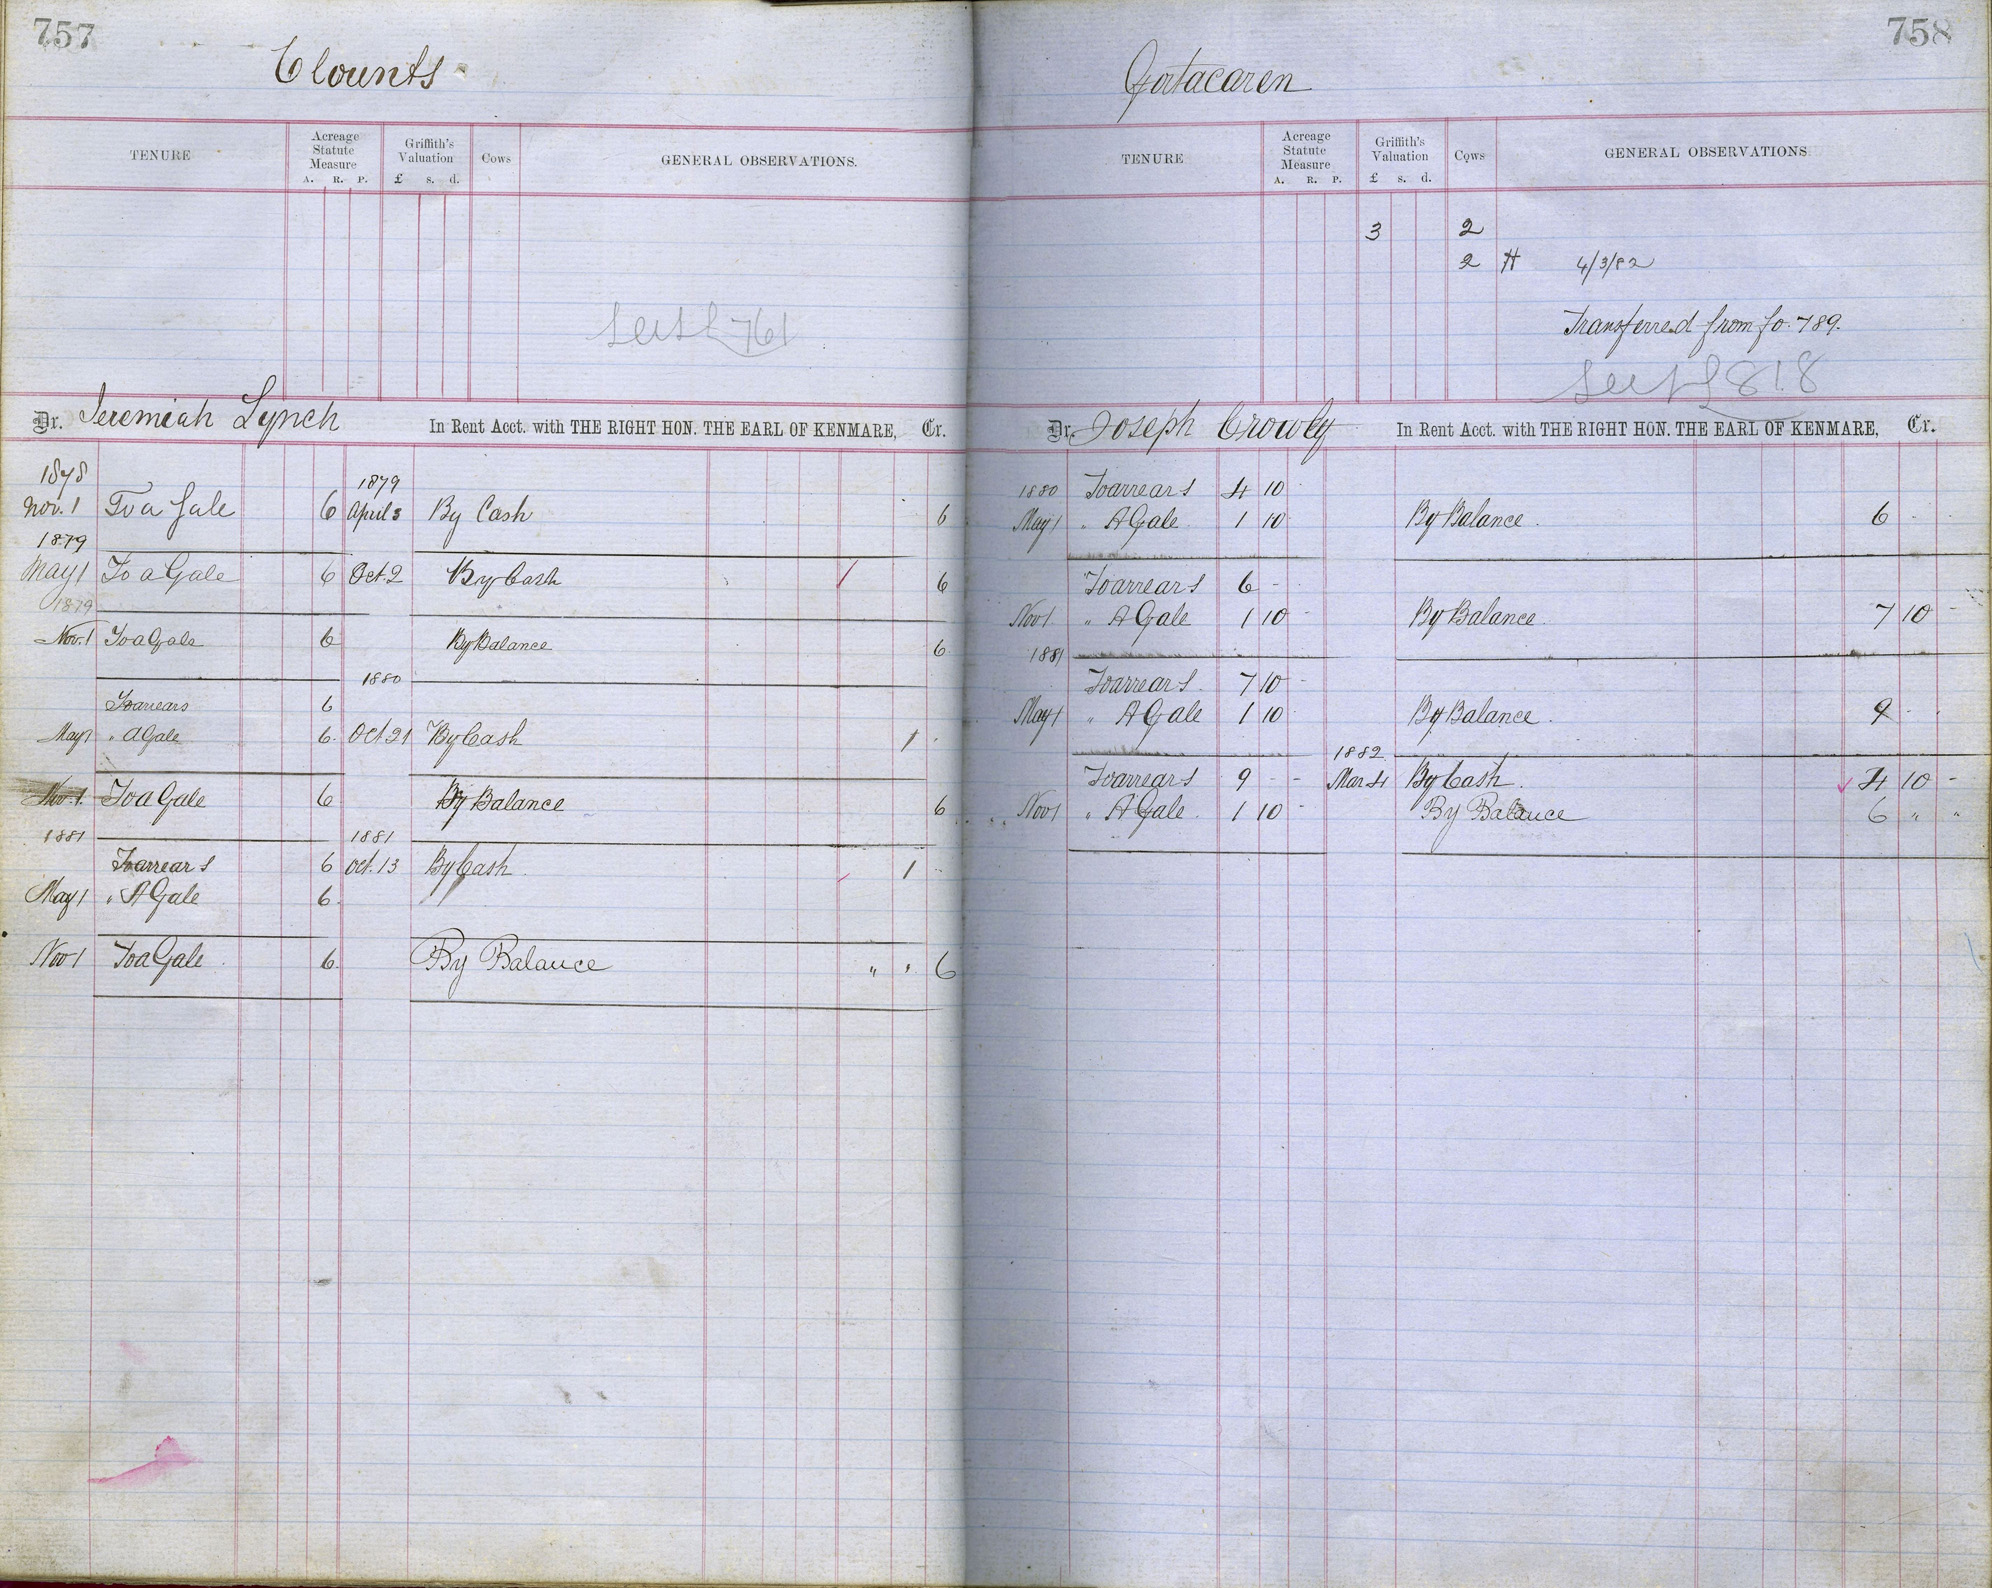 757
Clounts
TENURE
Acreage Statute Measure
A. R. P.
Griffith's Valuation
£ s. d.
Cows
GENERAL OBSERVATIONS.
761
Dr. Jeremiah Lynch In Rent Acct. with THE RIGHT HON. THE EARL OF KENMARE, Cr.
1878 1879
Nov. 1 To a Gale 6 April 3 By Cash 6
1879
May 1 To a Gale 6 Oct. 2 By Cash 6
1879
Nov. 1 To a Gale 6 By Balance 6
1880
To arrears 6
May 1 " A Gale 6 Oct 21 By Cash 1
Nov. 1 To a Gale 6 By Balance 6
1881 1881
To arrears 6 Oct. 13 By Cash 1
May 1 " A Gale 6
Nov 1 To a Gale 6 By Balance " " 6
758
Gortacaren
TENURE
Acreage Statute Measure
A. R. P.
Griffith's Valuation
£ s. d.
Cows
GENERAL OBSERVATIONS
3 2
2 H 4/3/82
Transferred from fo. 789.
818
Dr. Joseph Crowly In Rent Acct. with THE RIGHT HON. THE EARL OF KENMARE, Cr.
1880 To arrears 4 10
May 1 " A Gale 1 10 By Balance 6
To arrears 6 -
Nov 1 " A Gale 1 10 - By Balance 7 10 -
1881
To arrears 7 10 -
May 1 " A Gale 1 10 By Balance 9
1882
To arrears 9 - - Mar 4 By Cash 4 10 -
Nov 1 " A Gale 1 10 - By Balance 6 " "